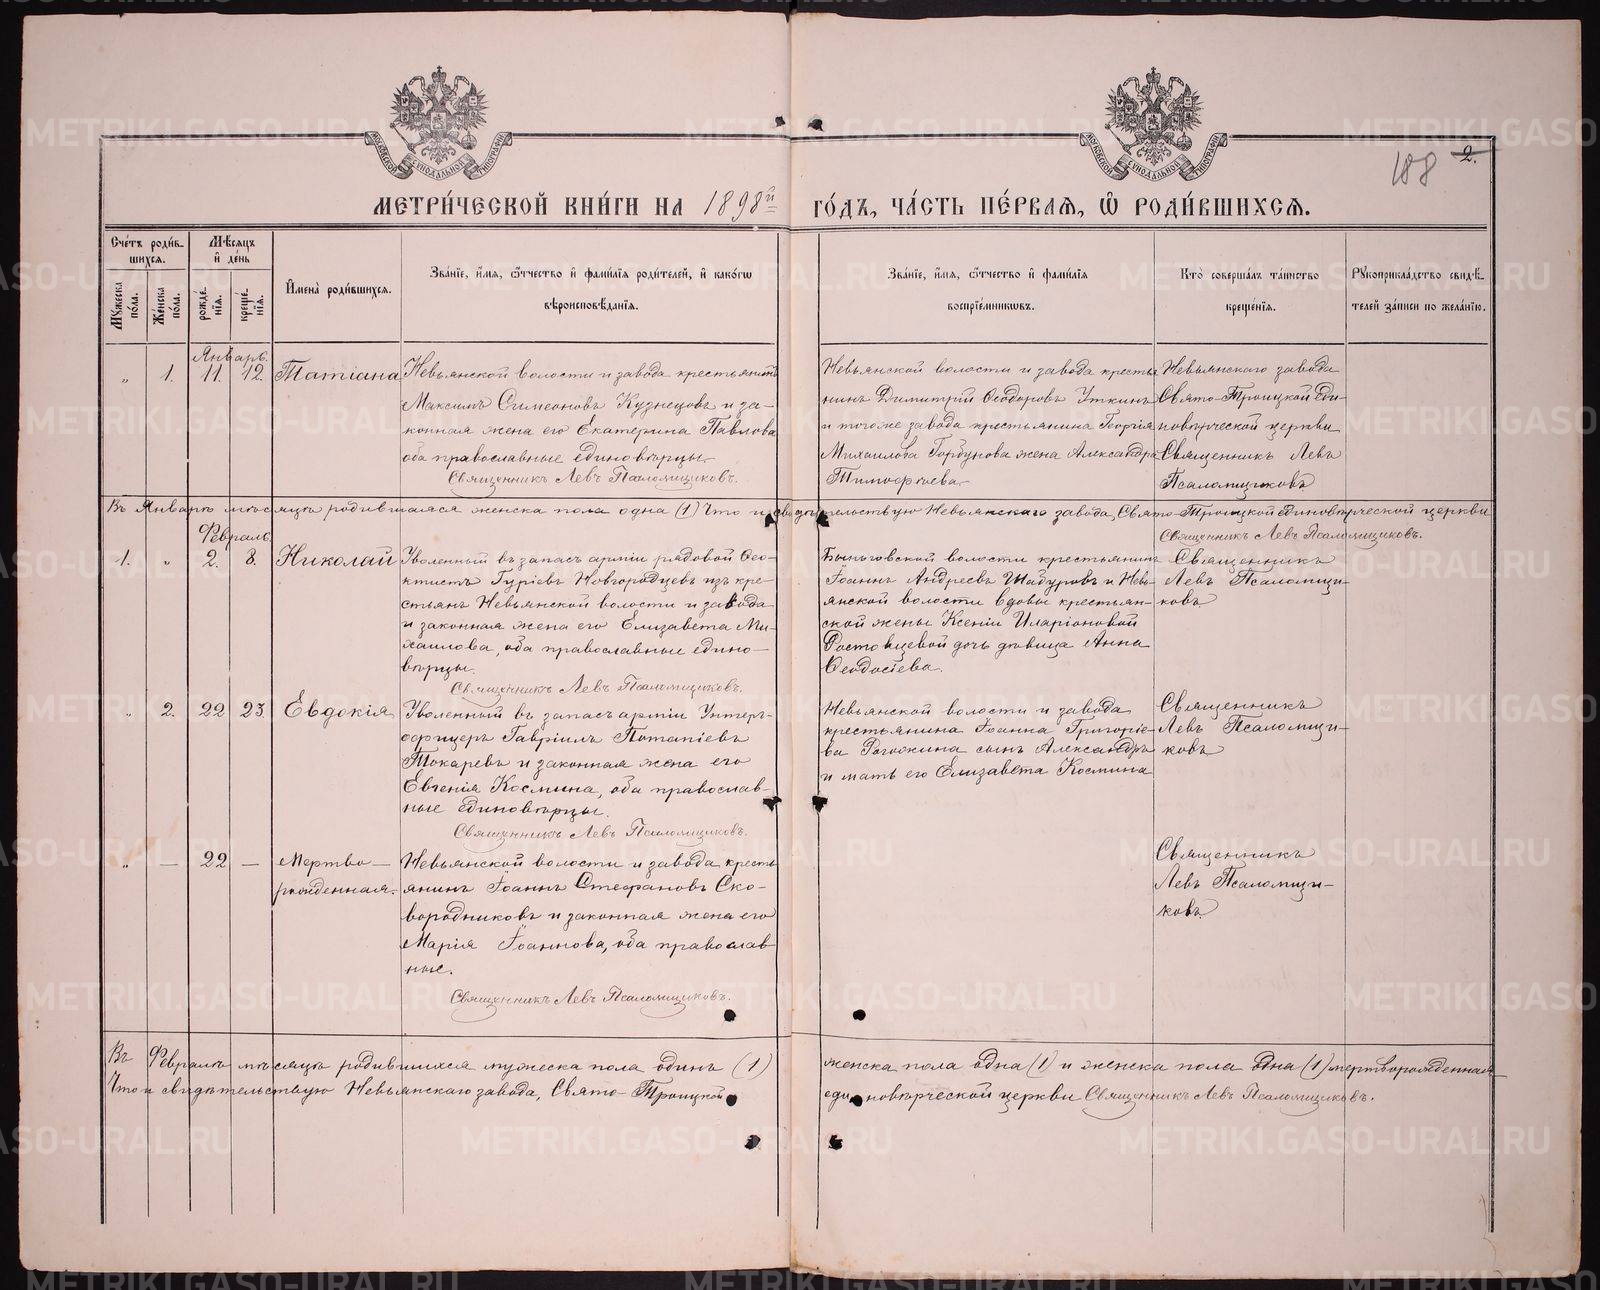 МЕТРИ́ЧЕСКОЙ КНИ́ГИ НА 1898й ГО́ДЪ, ЧА́СТЬ ПЕ́РВАЯ, Ѡ РОДИ́ВШИХСЯ.
188
2.
Сче́тъ роди́в-
шихся.
Мѣ́сяцъ
и҆ де́нь
Мꙋ́жеска по́ла.
Же́нска по́ла.
рожде́-нїѧ.
креще́-нїѧ.
И҆мена̀ роди́вшихся.
Зва́нїе, и҆́мѧ, ѻ҆́тчество и҆ фами́лїѧ роди́телей, и҆ како́гѡ
вѣроисповѣ́данїѧ.
Зва́нїе, и҆́мѧ, ѻ҆́тчество и҆ фами́лїѧ
воспрїе́мниковъ.
Кто̀ соверша́лъ та́инство
креще́нїѧ.
Рꙋкоприкла́дство свидѣ́-
телей за́писи по жела́нїю.
Январь.
„ 1. 11. 12. Татіана
Невьянской волости и завода крестьянинъ
Максимъ Симеоновъ Кузнецовъ и за-
конная жена его Екатерина Павлова
оба православные единовѣрцы.
Священникъ Левъ Псаломщиковъ.
Невьянской волости и завода кресть-
нинъ Димитрій Ѳеодоровъ Уткинъ
и тогоже завода крестьянина Георгія
Михаилова Горбунова жена Александра
Тимофѣева.
Невьянскаго завода
Свято-Троицкой Еди-
новѣрческой церкви
Священникъ Левъ
Псаломщиковъ
Въ Январѣ мѣсяцѣ родившаяся женска пола одна (1) Что и свидѣтельствую Невьянскаго завода, Свято-Троицкой единовѣрческой церкви
Священникъ Левъ Псаломщиковъ.
Февраль.
1. „ 2. 8. Николай
Уволенный въ запасъ арміи рядовой Ѳео-
ктистъ Гуріевъ Новгородцевъ изъ кре-
стьянъ Невьянской волости и завода
и законная жена его Елизавета Ми-
хаилова, оба православные едино-
вѣрцы.
Священникъ Левъ Псаломщиковъ.
Быньговской волости крестьянинъ
Іоаннъ Андреевъ Шадуровъ и Невь-
янской волости вдовы крестьян-
ской жены Ксеніи Иларіоновой
Ростовцевой дочь дѣвица Анна
Ѳеодосіева.
Священникъ
Левъ Псаломщи-
ковъ
„ 2. 22 23. Евдокія
Уволенный въ запасъ арміи Унтеръ-
офицеръ Гавріилъ Потапіевъ
Токаревъ и законная жена его
Евгенія Космина, оба православ-
ные единовѣрцы.
Священникъ Левъ Псаломщиковъ.
Невьянской волости и завода
крестьянина Іоанна Григоріе-
ва Рогожина сынъ Александръ
и мать его Елизавета Космина
Священникъ
Левъ Псаломщи-
ковъ
„ — 22 — Мертво-
рожденная.
Невьянской волости и завода кресть-
янинъ Іоаннъ Стефановъ Ско-
вородниковъ и законная жена его
Марія Іоаннова, оба православ-
ные.
Священникъ Левъ Псаломщиковъ.
Священникъ
Левъ Псаломщи-
ковъ
Въ Февралѣ мѣсяцѣ родившихся мужеска пола одинъ (1) женска пола одна (1) и женска пола одна (1) мертворожденная
Что и свидѣтельствую Невьянскаго завода, Свято-Троицкой единовѣрческой церкви Священникъ Левъ Псаломщиковъ.